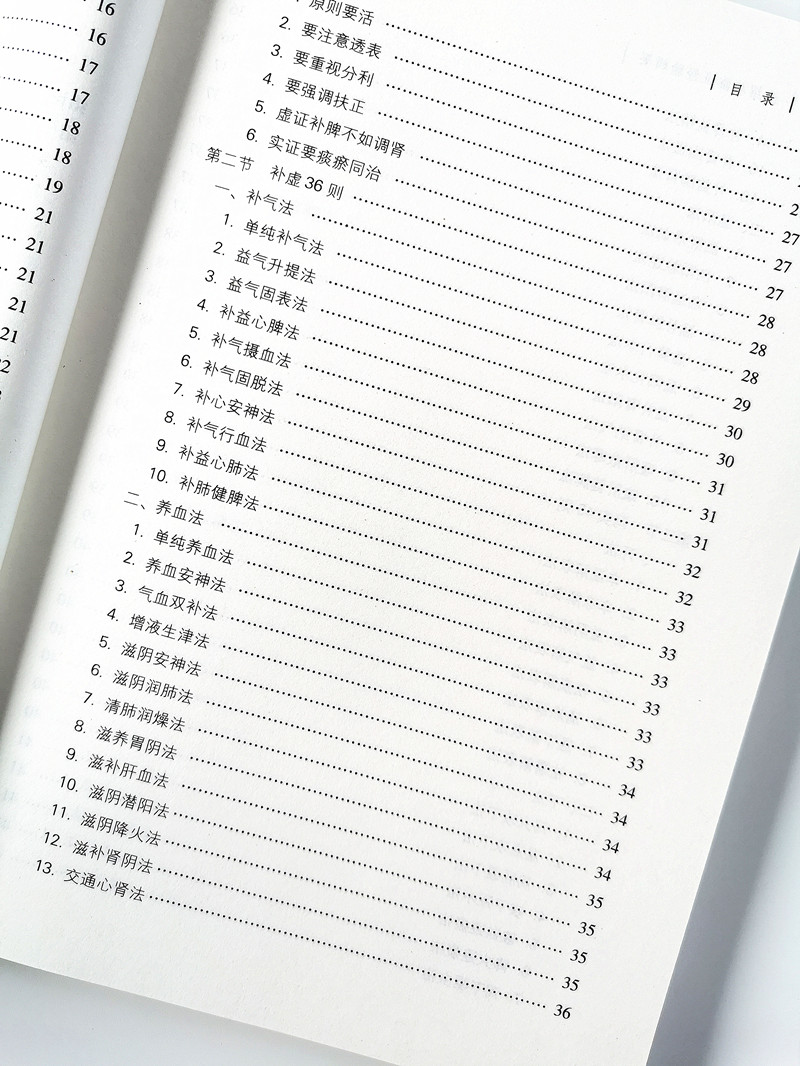 16
16
17
17
18
18
19
21
21
21
21
21
目 录
原则要活
2. 要注意透表
3. 要重视分利
4. 要强调扶正 27
5. 虚证补脾不如调肾 27
6. 实证要痰瘀同治 27
第二节 补虚36则 28
一、补气法 28
1. 单纯补气法 28
2. 益气升提法 29
3. 益气固表法 30
4. 补益心脾法 30
5. 补气摄血法 31
6. 补气固脱法 31
7. 补心安神法 31
8. 补气行血法 32
9. 补益心肺法 32
10. 补肺健脾法 33
二、养血法 33
1. 单纯养血法 33
2. 养血安神法 33
3. 气血双补法 33
4. 增液生津法 33
5. 滋阴安神法 34
6. 滋阴润肺法 34
7. 清肺润燥法 34
8. 滋养胃阴法 34
9. 滋补肝血法 35
10. 滋阴潜阳法 35
11. 滋阴降火法 35
12. 滋补肾阴法 35
13. 交通心肾法 36